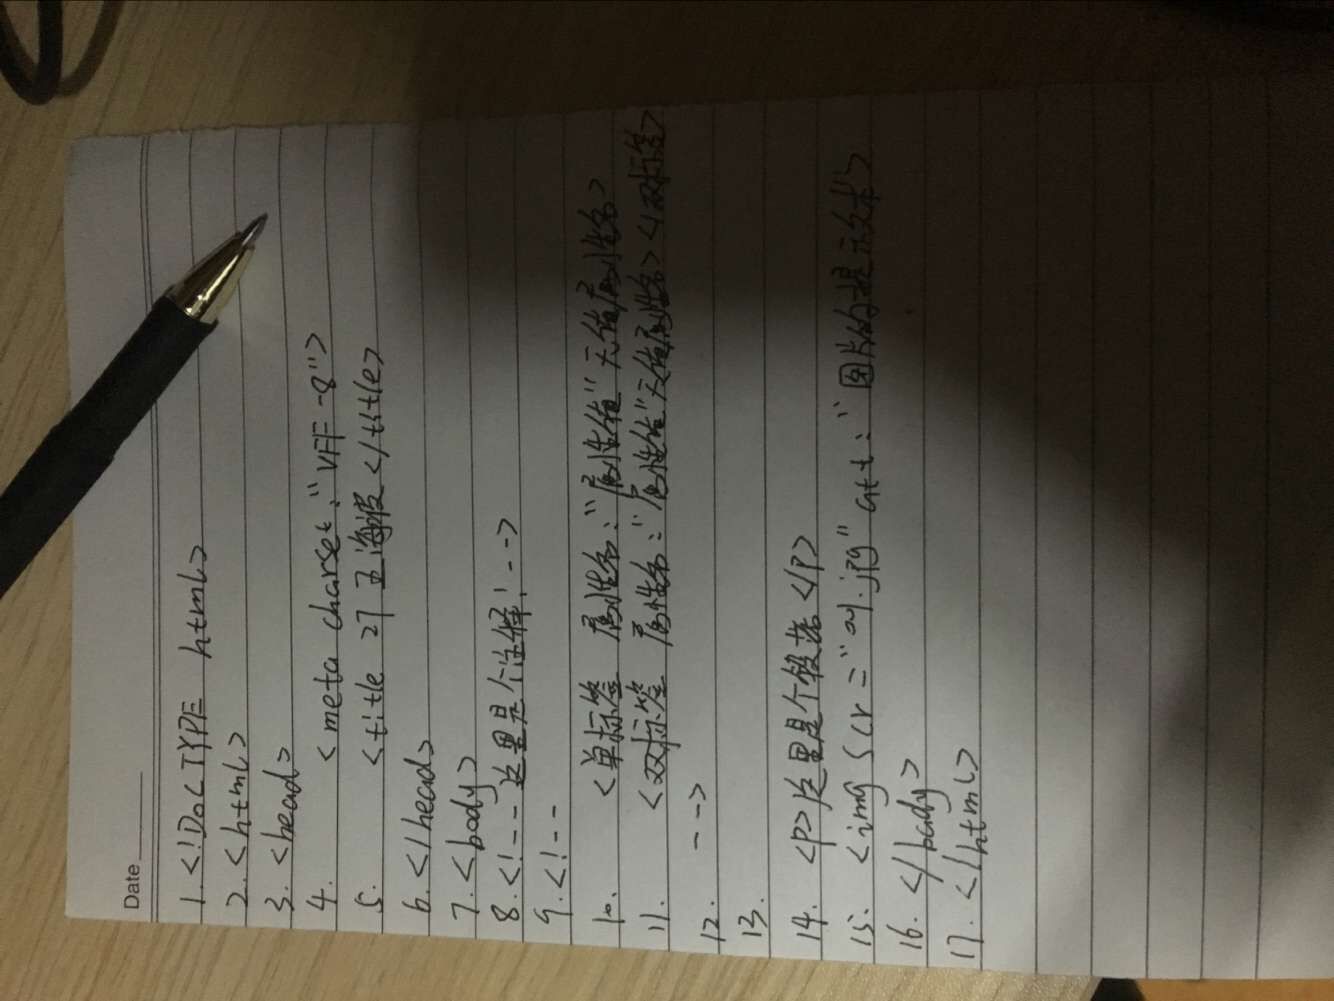 Date
1. <!DOCTYPE html>
2. <html>
3. <head>
4. <meta charset:"VFF-8">
5. <title 27 王海报</title>
6. </head>
7. <body>
8. <!-- 这里是个注释! -->
9. <!--
10. <单标签 属性名:"属性值"无值属性名>
11. <双标签 属性名:"属性值"无值属性名></双标签>
12. -->
13.
14. <p>这里是个段落</p>
15. <img scr="01.jpg" att:"图片的提示文本">
16. </body>
17. </html>